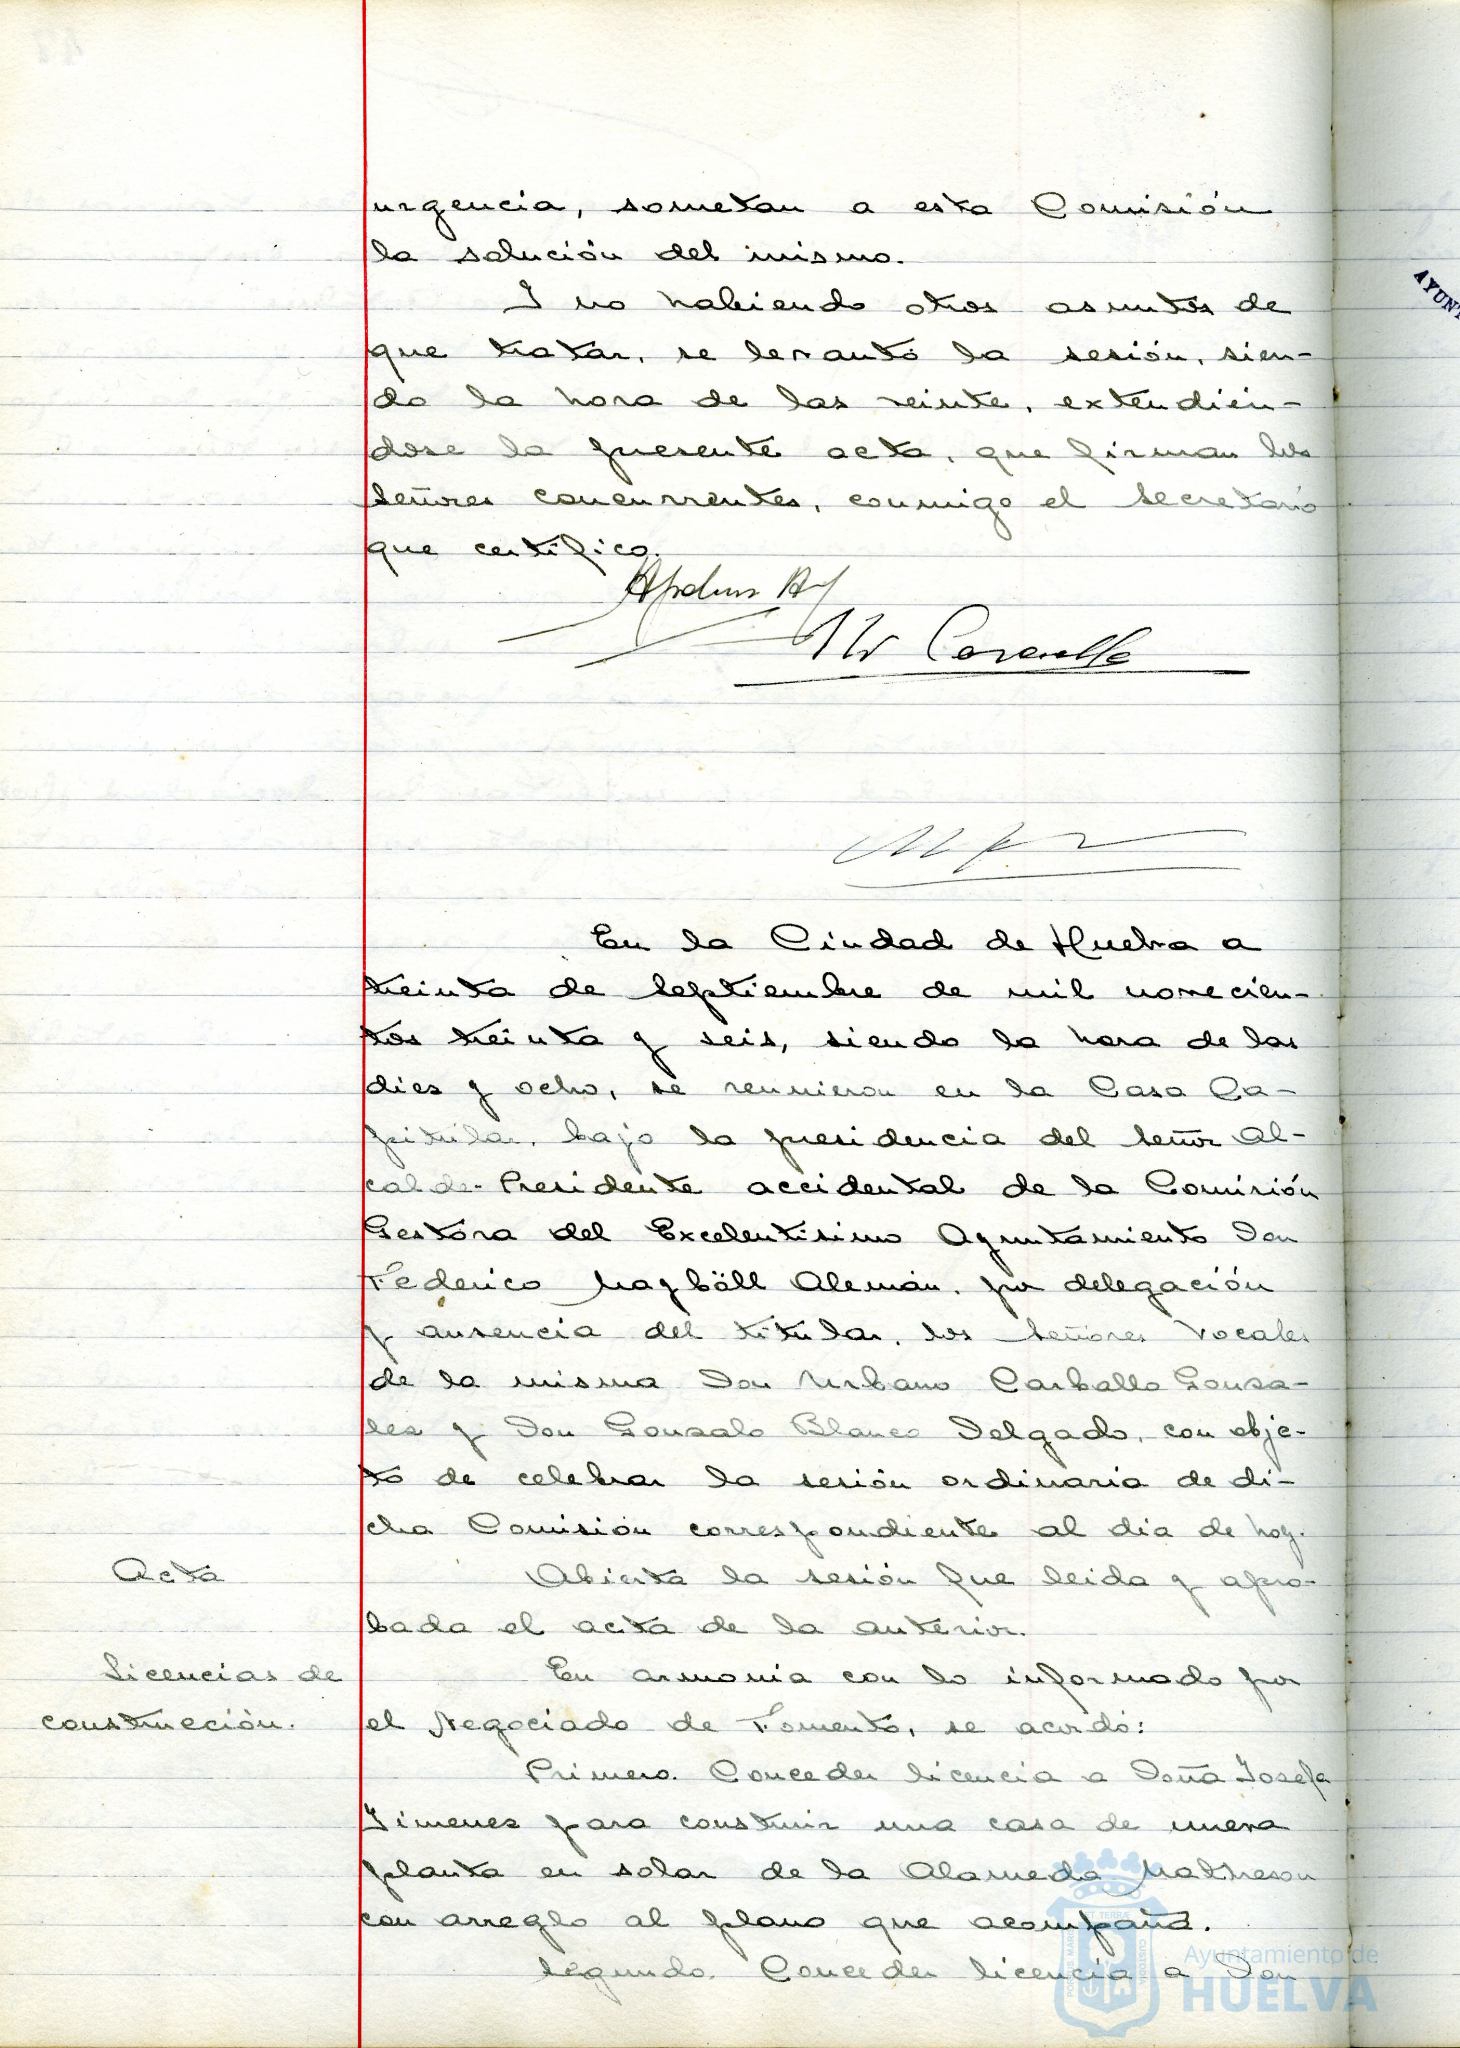 urgencia, sometan a esta Comisión
la solución del mismo.
Y no habiendo otros asuntos de
que tratar, se levantó la sesión, sien-
do la hora de las veinte, extendién-
dose la presente acta, que firman los
Señores concurrentes, conmigo el Secretario
que certifico.
En la Ciudad de Huelva a
treinta de Septiembre de mil novecien-
tos treinta y seis, siendo la hora de las
diez y ocho, se reunieron en la Casa Ca-
pitular, bajo la presidencia del Señor Al-
calde-Presidente accidental de la Comisión
Gestora del Excelentísimo Ayuntamiento Don
Federico Alemán, por delegación
y ausencia del titular, los Señores Vocales
de la misma Don Urbano Carballo Gonza-
lez y Don Gonzalo Blanco Delgado, con obje-
to de celebrar la sesión ordinaria de di-
cha Comisión correspondiente al día de hoy.
Acta
Abierta la sesión fue leida y apro-
bada el acta de la anterior.
Licencias de
construcción.
En armonia con lo informado por
el Negociado de Fomento, se acordó:
Primero. Conceder licencia a Doña Josefa
Jimenez para construir una casa de nueva
planta en solar de la Alameda Matheson
con arreglo al plano que acompaña.
Segundo. Conceder licencia a Don
Ayuntamiento de
HUELVA
AYUNT